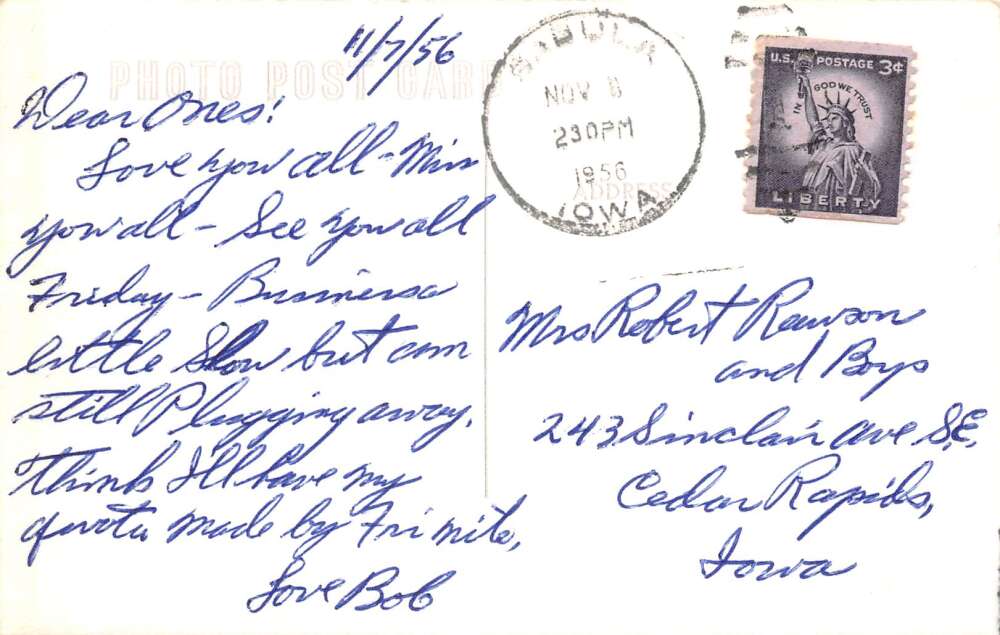 11/7/56
PHOTO POST CARD
Dear Ones!
Love you all - Miss
you all - See you all
Friday - Business a
little Slow but am
still Plugging away.
Think I'll have my
quota made by Fri nite,
Love Bob
SABULA
NOV 8
2 30 PM
1956
IOWA
ADDRESS
U.S. POSTAGE 3¢
IN GOD WE TRUST
LIBERTY
Mrs Robert Rawson
and Boys
243 Sinclair Ave S.E.
Cedar Rapids,
Iowa